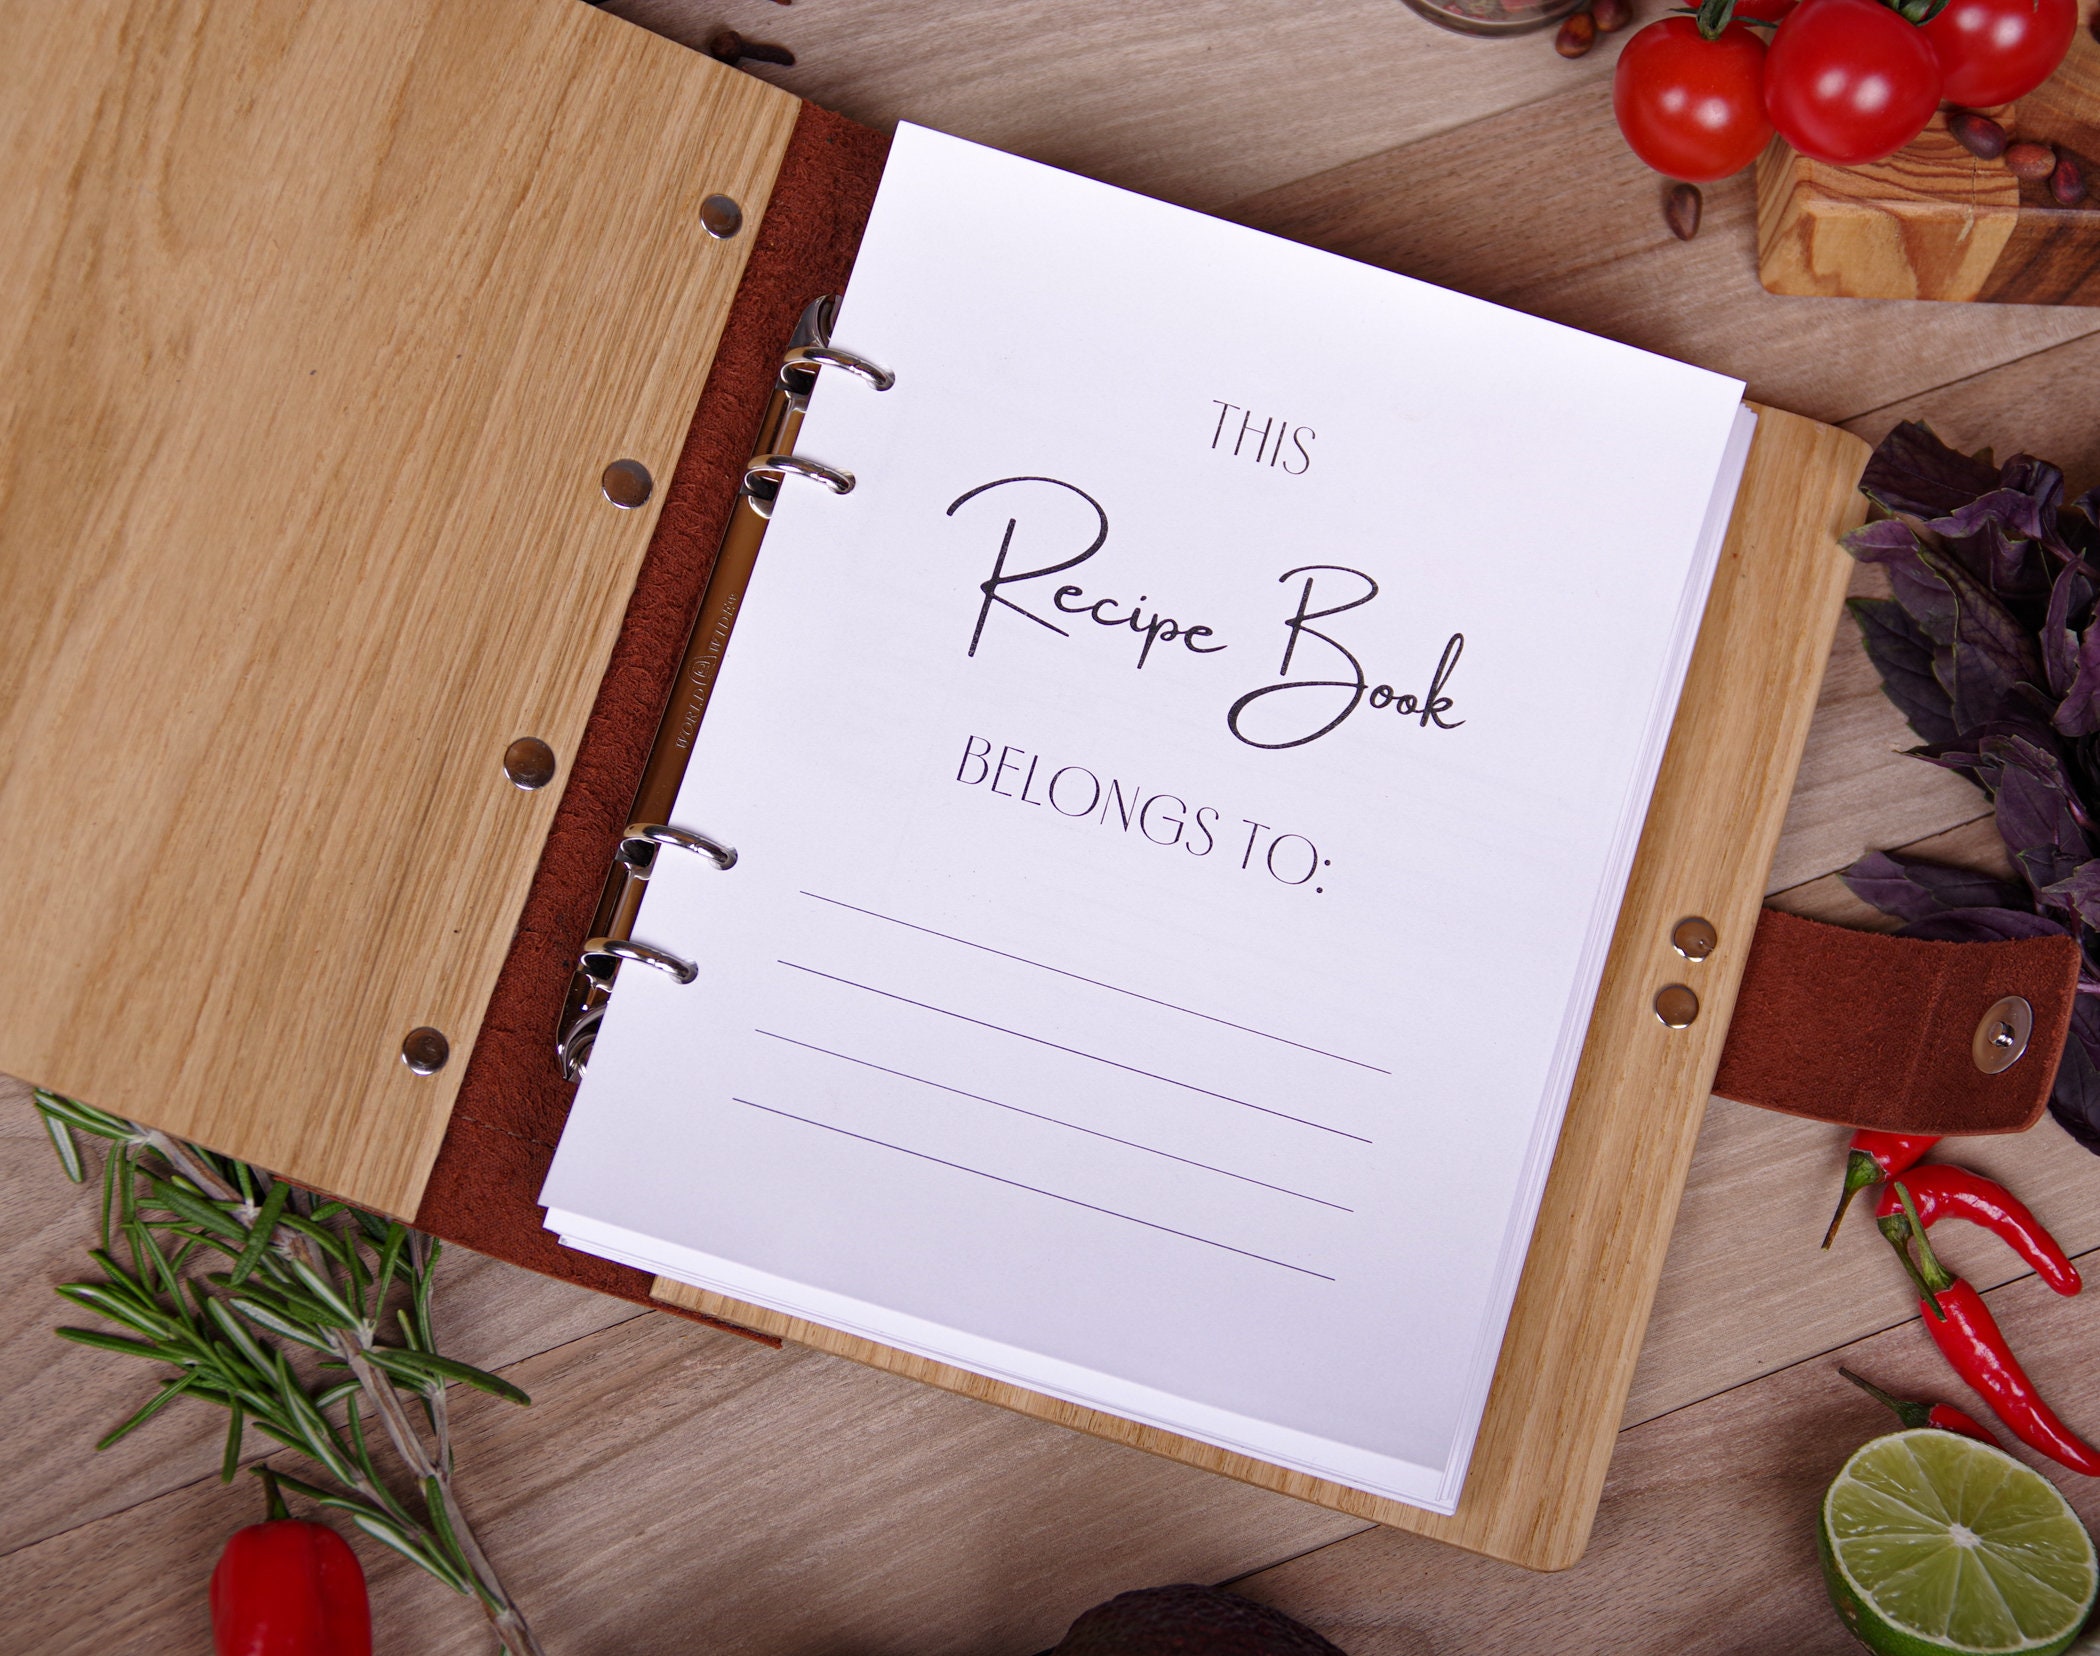 THIS
Recipe Book
BELONGS TO:
WORLD WIDE